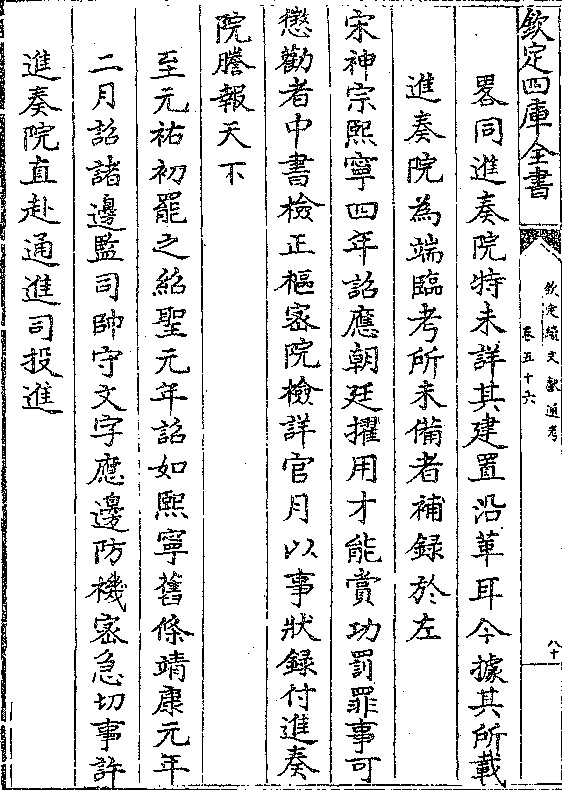 欽定四庫全書
欽定續文獻通考
卷五十六
八十
畧同進奏院特未詳其建置沿革耳今據其所載
進奏院為端臨考所未備者補録於左
宋神宗熙寧四年詔應朝廷擢用才能賞功罰罪事可
懲勸者中書檢正樞宻院檢詳官月以事狀録付進奏
院謄報天下
至元祐初罷之紹聖元年詔如熙寧舊條靖康元年
二月詔諸邊監司帥守文字應邊防機宻急切事許
進奏院直赴通進司投進